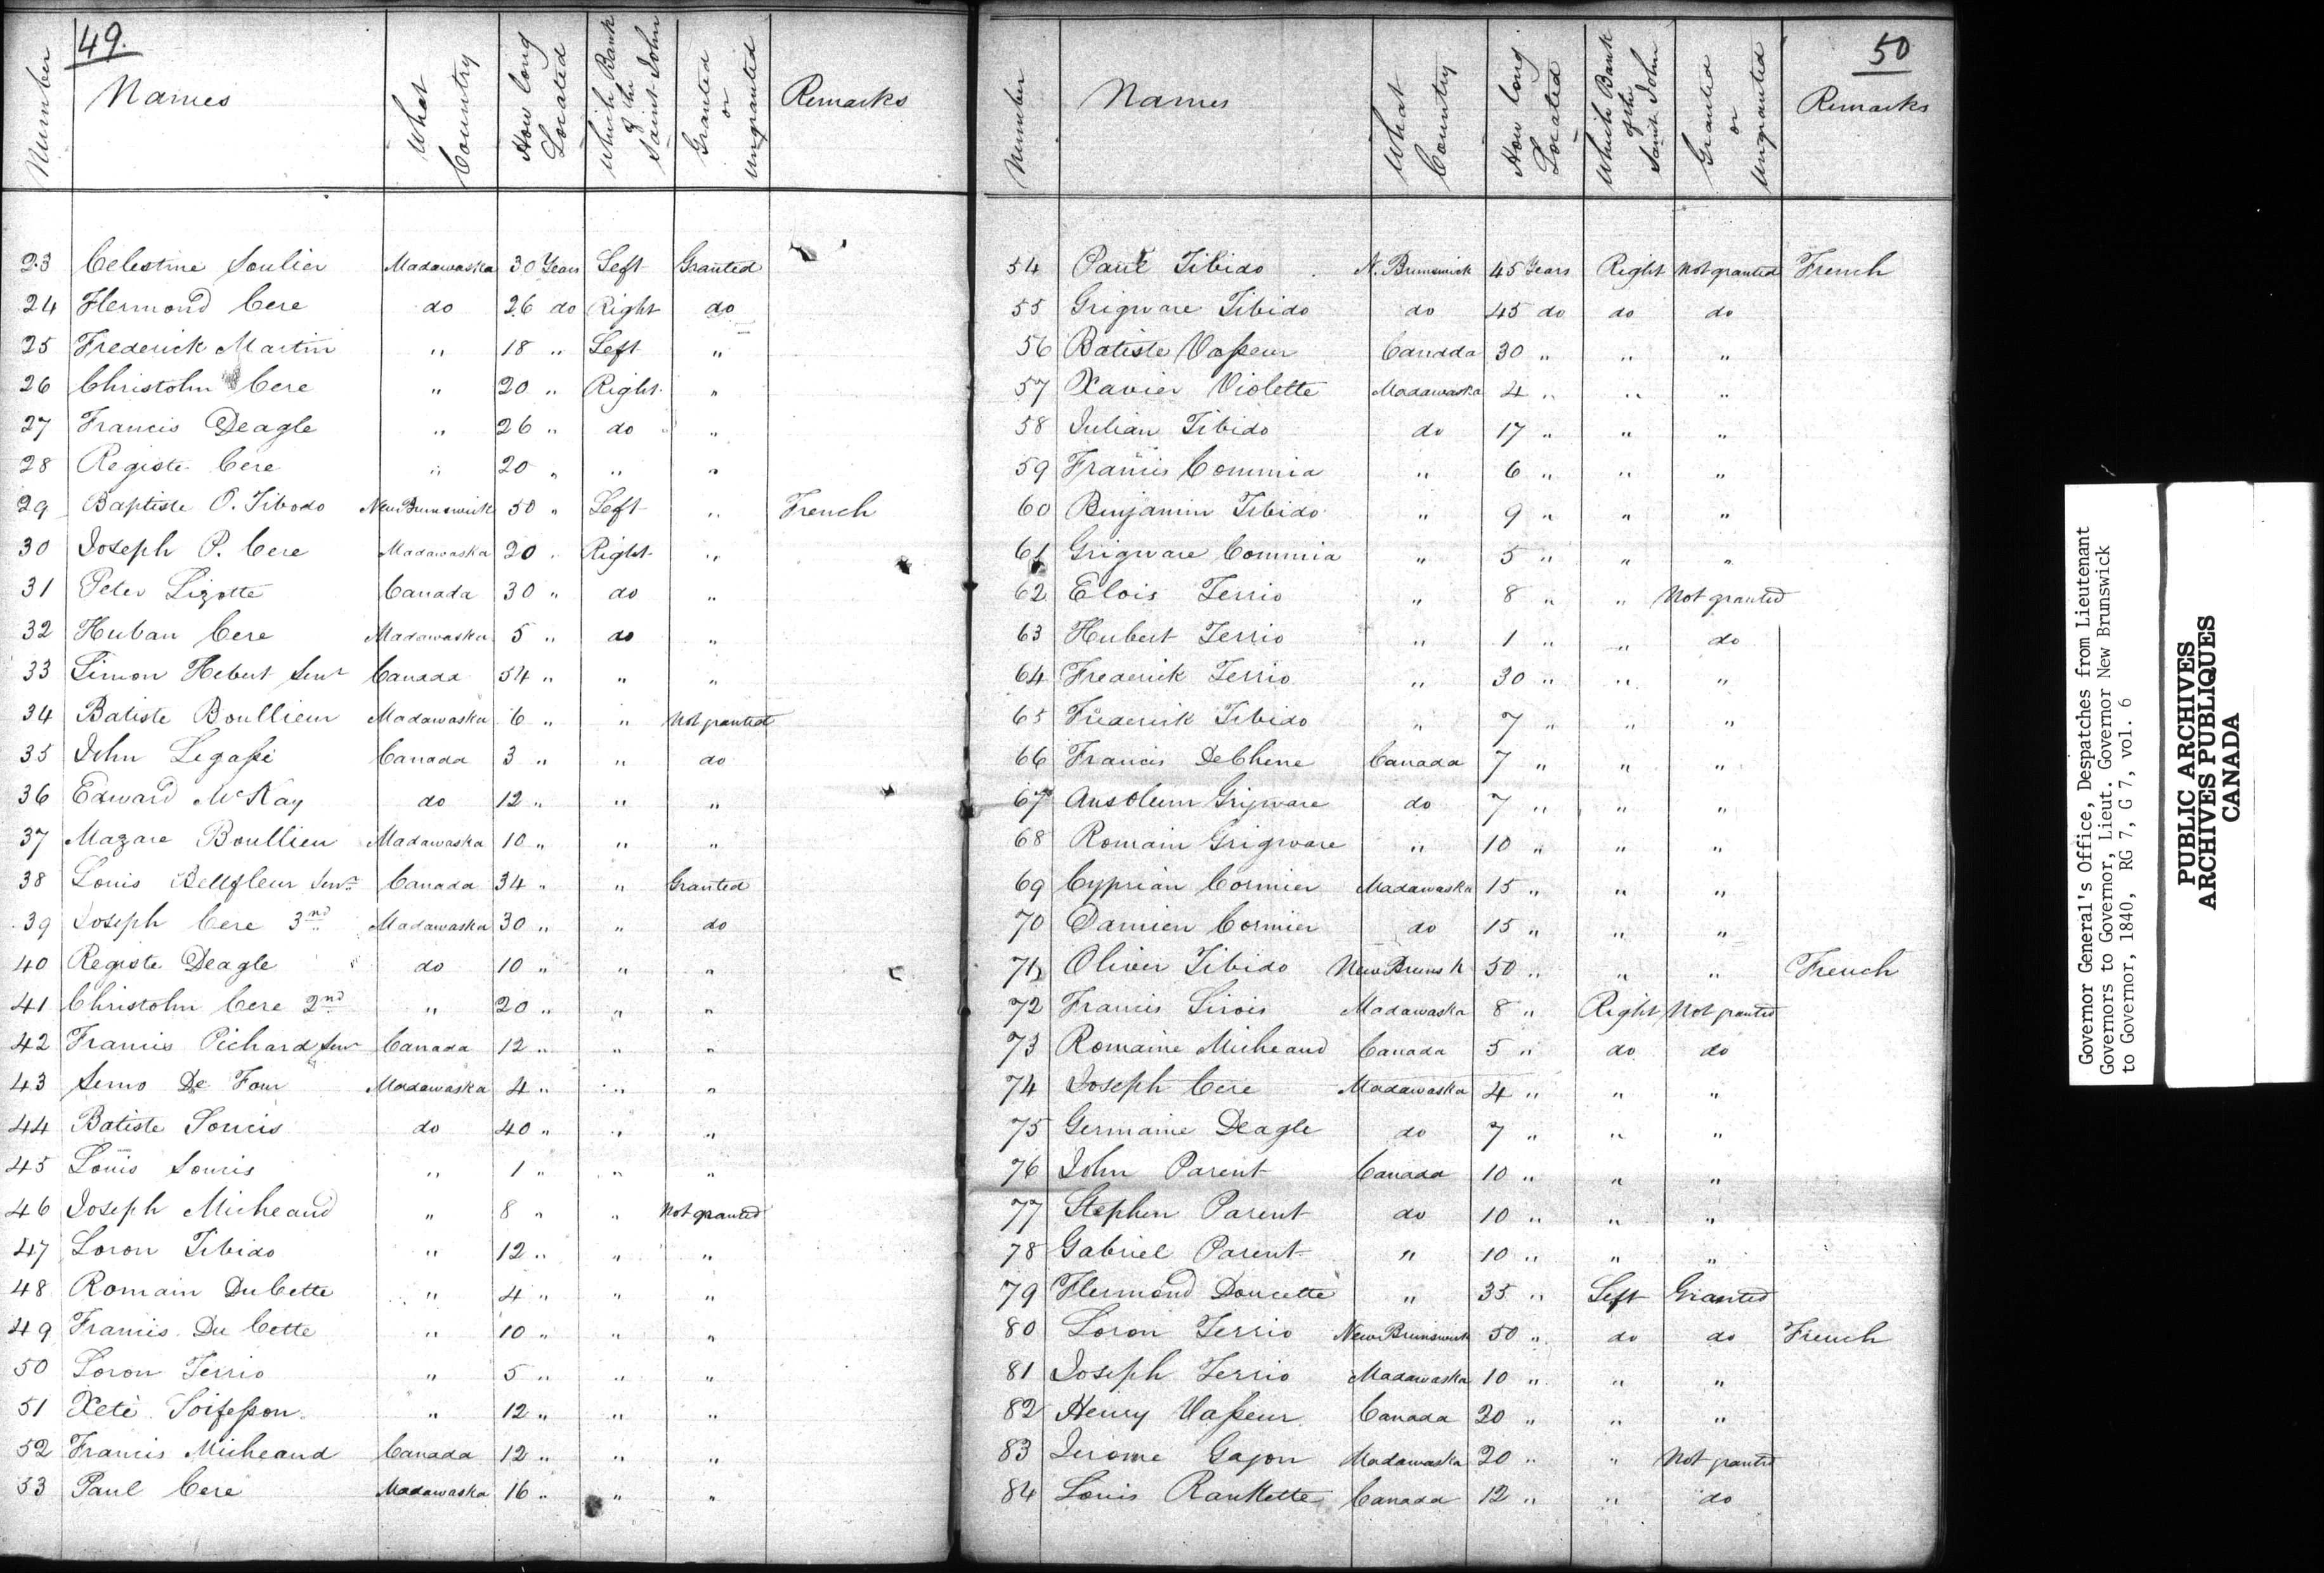 49.
Number Names What Country How long Located Which Bank of the Saint John Granted or ungranted Remarks
23 Celestine Soulier Madawaska 30 Years Left Granted
24 Flermond Cere do 26 do Right do
25 Frederick Martin " 18 " Left "
26 Christohn Cere " 20 " Right "
27 Francis Deagle " 26 " do "
28 Registe Cere " 20 " " "
29 Baptiste O. Tibodo New Brunswick 50 " Left " French
30 Joseph P. Cere Madawaska 20 " Right "
31 Peter Lizotte Canada 30 " do "
32 Huban Cere Madawaska 5 " do "
33 Simon Hebert Senr Canada 54 " " "
34 Batiste Boullieur Madawaska 6 " " Not granted
35 John Legassé Canada 3 " " do
36 Edward McKay do 12 " " "
37 Mazare Boullieu Madawaska 10 " " "
38 Louis Bellfleur Senr Canada 34 " " Granted
39 Joseph Cere 3nd Madawaska 30 " " do
40 Registe Deagle do 10 " " "
41 Christohn Cere 2nd " 20 " " "
42 Francis Pichard Senr Canada 12 " " "
43 Semo De Four Madawaska 4 " " "
44 Batiste Soucis do 40 " " "
45 Louis Soucis " 1 " " "
46 Joseph Micheaud " 8 " " Not granted
47 Loron Tibido " 12 " " "
48 Romain DuCette " 4 " " "
49 Francis Du Cette " 10 " " "
50 Loron Terrio " 5 " " "
51 Xeté " 12 " " "
52 Francis Micheaud Canada 12 " " "
53 Paul Cere Madawaska 16 " " "
50
Number Names What Country How long Located Which Bank of the Saint John Granted or ungranted Remarks
54 Paul Tibido N. Brunswick 45 Years Right Not granted French
55 Grigware Tibido do 45 do do do
56 Batiste Vasseur Canada 30 " " "
57 Xavier Violette Madawaska 4 " " "
58 Julian Tibido do 17 " " "
59 Francis Commia " 6 " " "
60 Binjamin Tibido " 9 " " "
61 Grigware Commia " 5 " " "
62 Elois Terrio " 8 " " Not granted
63 Hubert Terrio " 1 " " do
64 Frederick Terrio " 30 " " "
65 Frederick Tibido " 7 " " "
66 Francis DeChene Canada 7 " " "
67 Ansolum Grigware do 7 " " "
68 Romain Grigware " 10 " " "
69 Cyprian Cormier Madawaska 15 " " "
70 Damien Cormier do 15 " " "
71 Oliver Tibido New Bruns k 50 " " " French
72 Francis Sirois Madawaska 8 " Right Not granted
73 Romaine Micheaud Canada 5 " do do
74 Joseph Cere Madawaska 4 " " "
75 Germaine Deagle do 7 " " "
76 John Parent Canada 10 " " "
77 Stephen Parent do 10 " " "
78 Gabriel Parent " 10 " " "
79 Flermond Doucette " 35 " Left Granted
80 Loron Terrio New Brunswick 50 " do do French
81 Joseph Terrio Madawaska 10 " " "
82 Henry Vasseur Canada 20 " " "
83 Jerome Gajon Madawaska 20 " " Not granted
84 Louis Rankette Canada 12 " " do
Governor General's Office, Despatches from Lieutenant
Governors to Governor, Lieut. Governor New Brunswick
to Governor, 1840, RG 7, G 7, vol. 6
PUBLIC ARCHIVES
ARCHIVES PUBLIQUES
CANADA